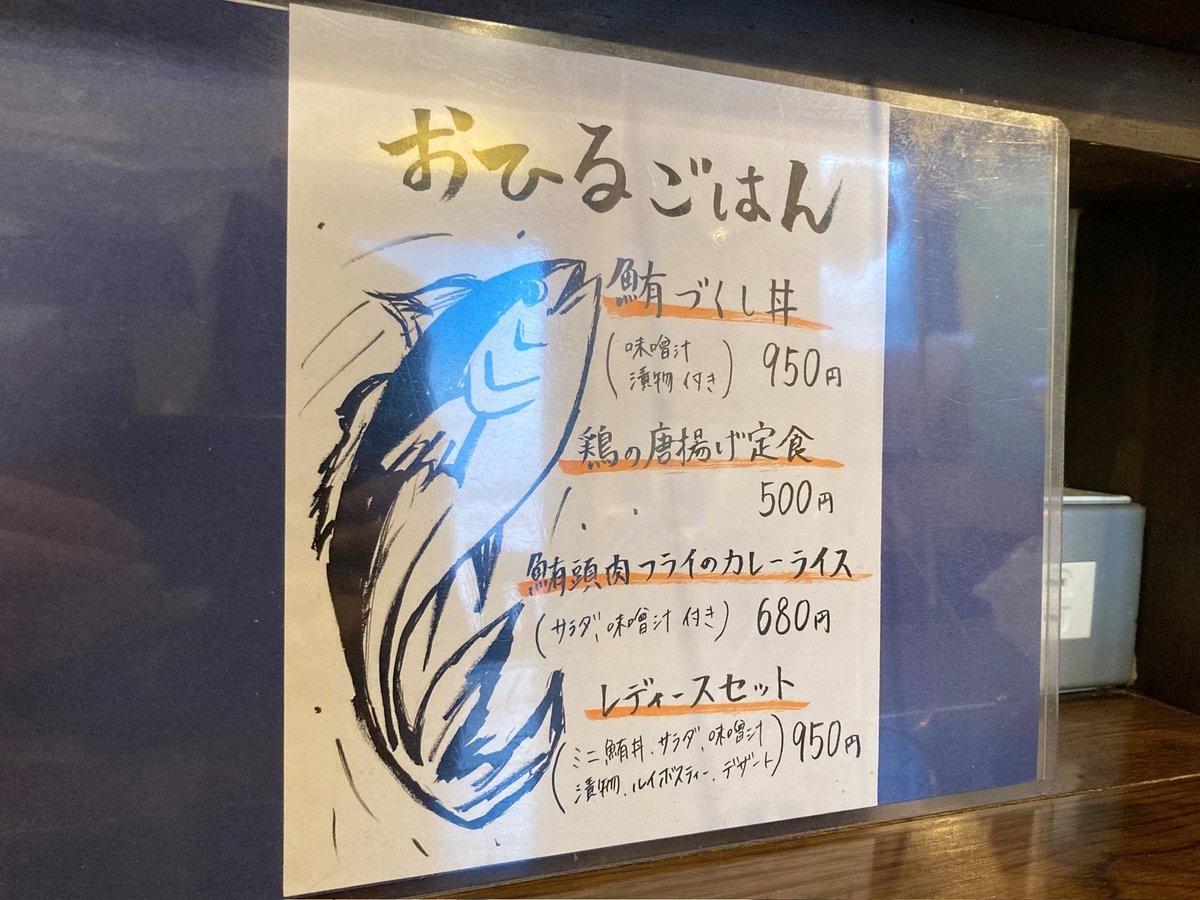 おひるごはん
鮪づくし丼
(味噌汁
漬物付き) 950円
鶏の唐揚げ定食
500円
鮪頭肉フライのカレーライス
(サラダ、味噌汁付き) 680円
レディースセット
(ミニ鮪丼、サラダ、味噌汁
漬物、ルイボスティー、デザート) 950円